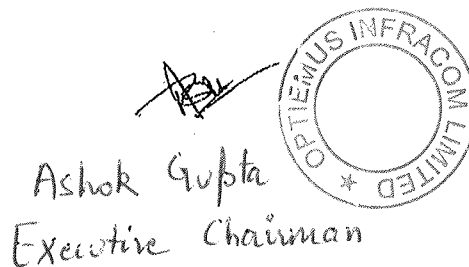 OPTIEMUS INFRACOM LIMITED ★
Ashok Gupta
Executive Chairman